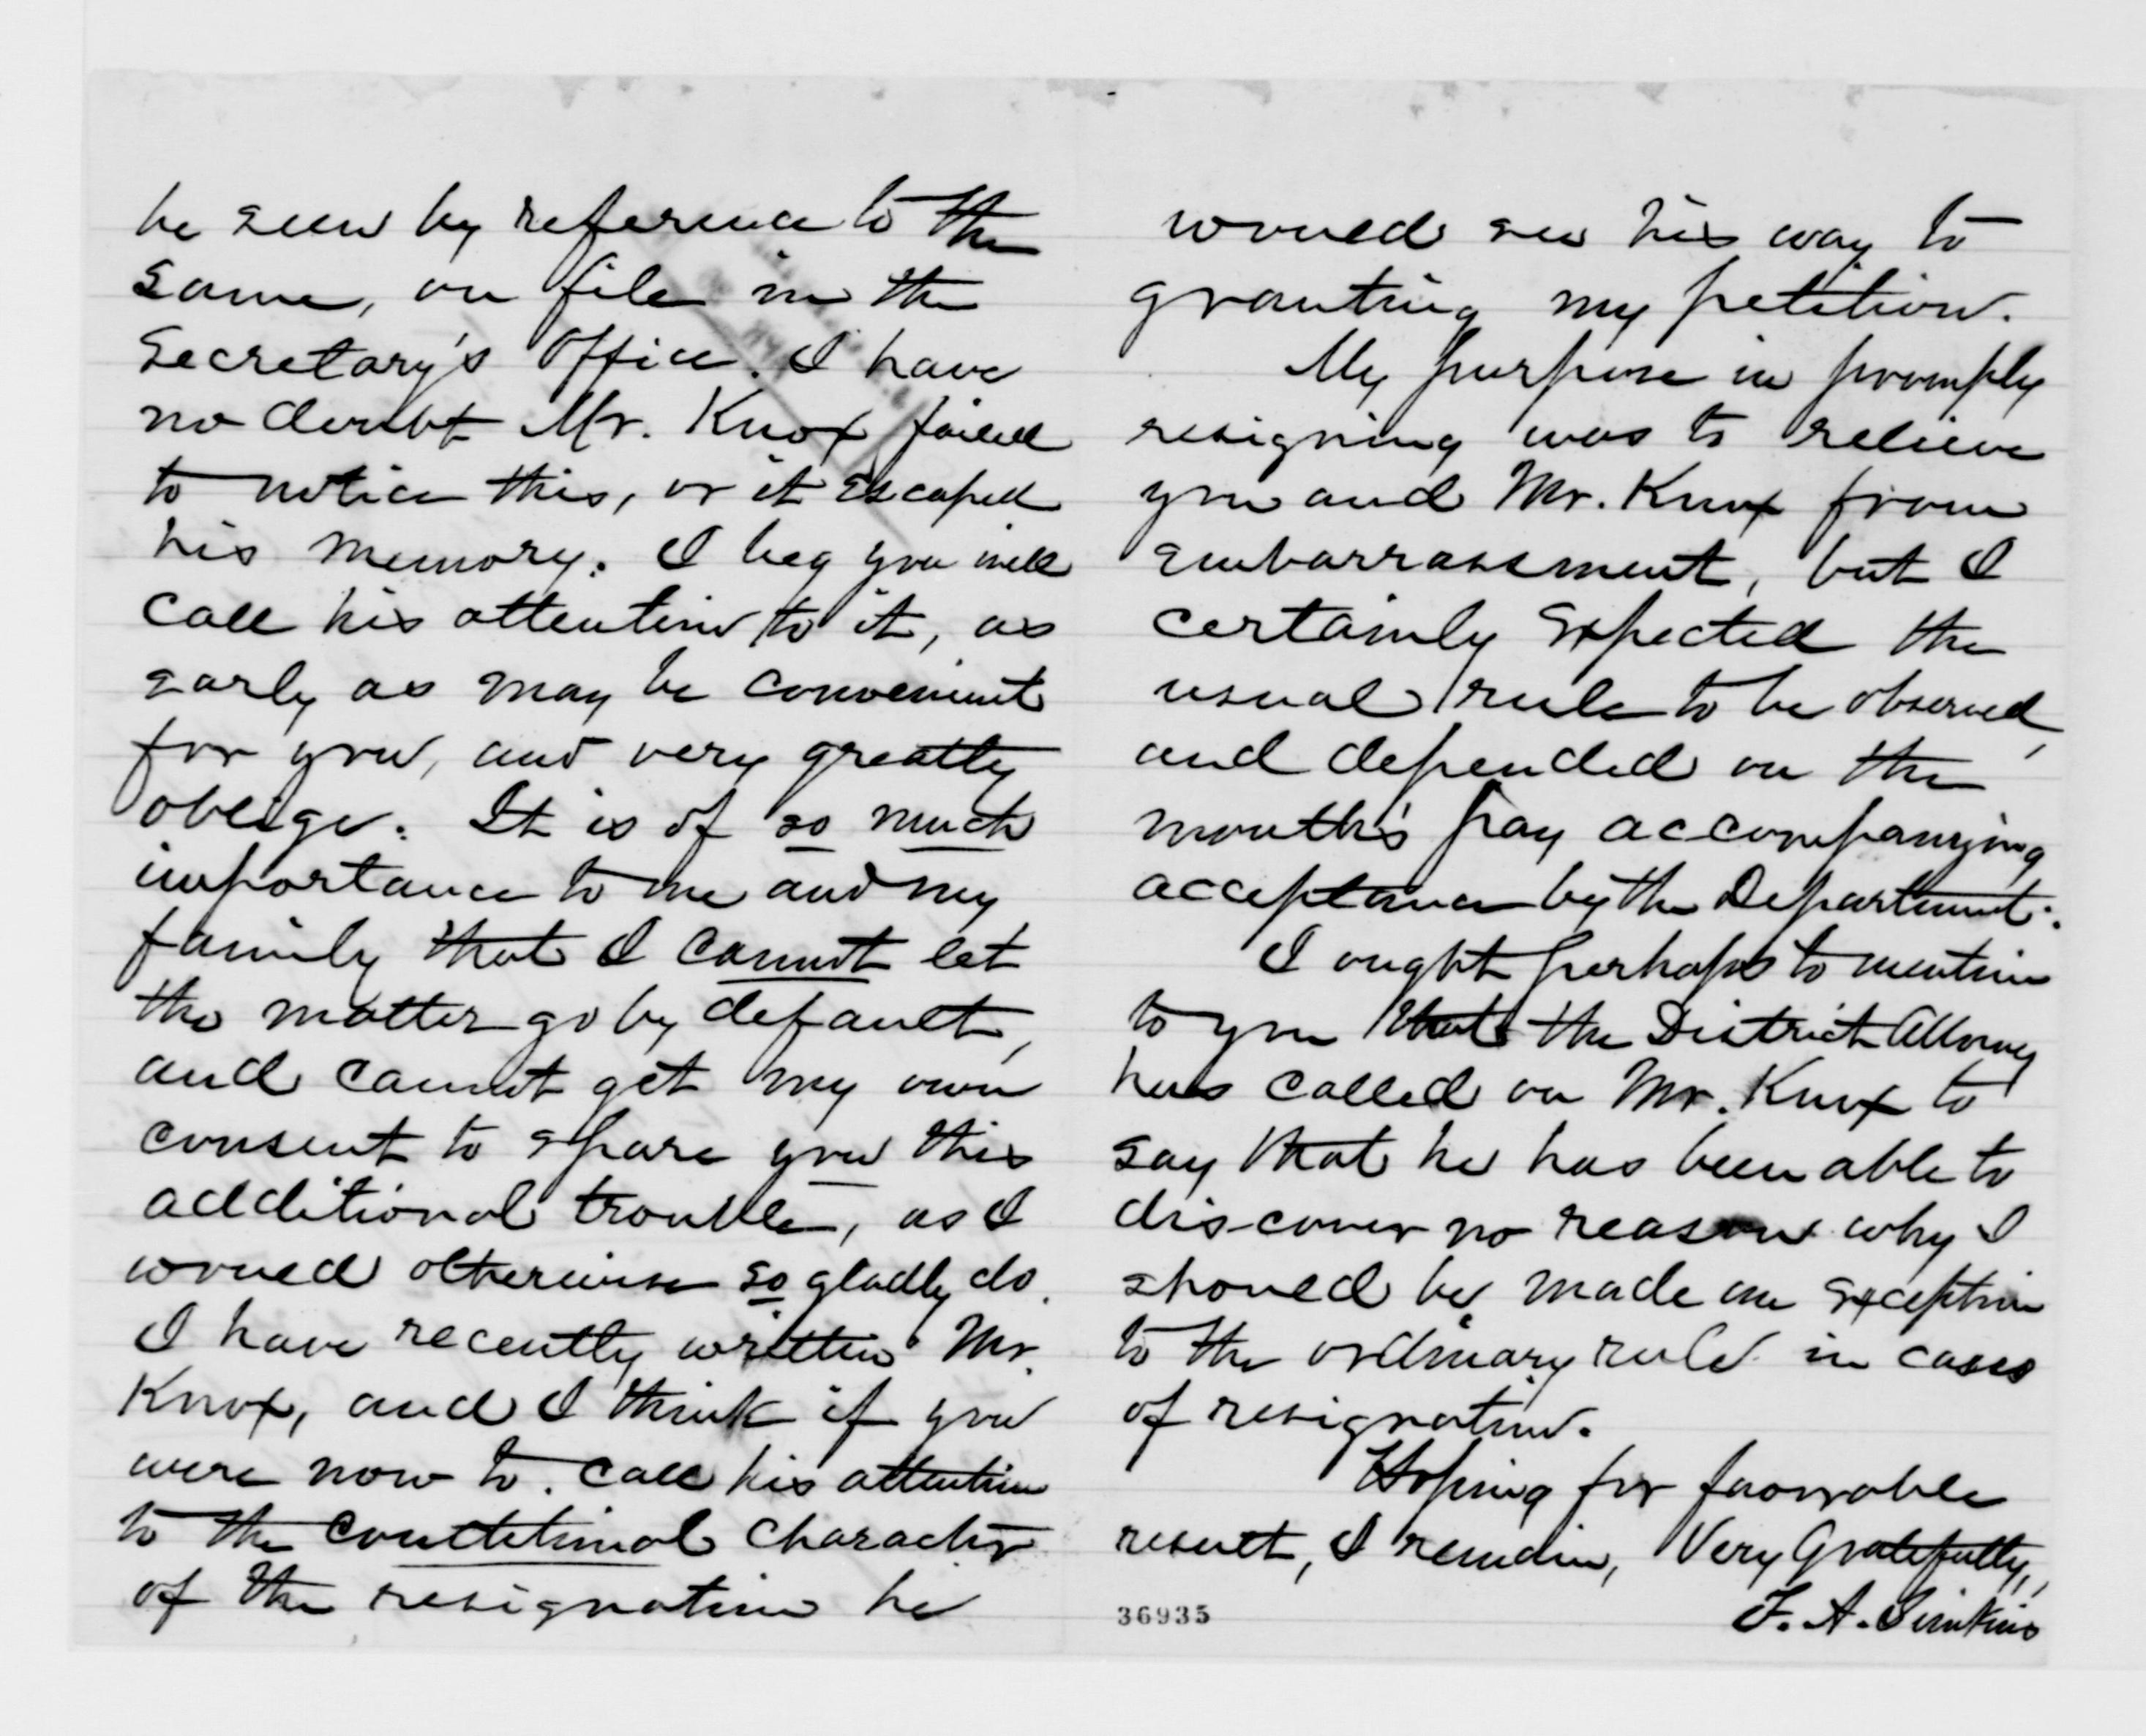 be seen by reference to the
same, on file in the
Secretary's Office. I have
no doubt Mr. Knox failed
to notice this, or it escaped
his memory. I beg you will
call his attention to it, as
early as may be convenient
for you, and very greatly
oblige. It is of so much
importance to me and my
family that I cannot let
the matter go by default,
and cannot get my own
consent to spare you this
additional trouble, as I
would otherwise so gladly do.
I have recently written Mr.
Knox, and I think if you
were now to call his attention
to the condititional character
of the resignation he
would see his way to
granting my petition.
My purpose in promply
resigning was to relieve
you and Mr. Knox from
embarrassment, but I
certainly expected the
usual rule to be observed,
and depended on the
month's pay accompanying
acceptance by the Department.
I ought perhaps to mention
to you that the District Attorney
has called on Mr. Knox to
say that he has been able to
discover no reason why I
should be made an exception
to the ordinary rule in cases
of resignation.
Hoping for favorable
result, I remain, Very Gratefully,
F. A. Simkins
36935